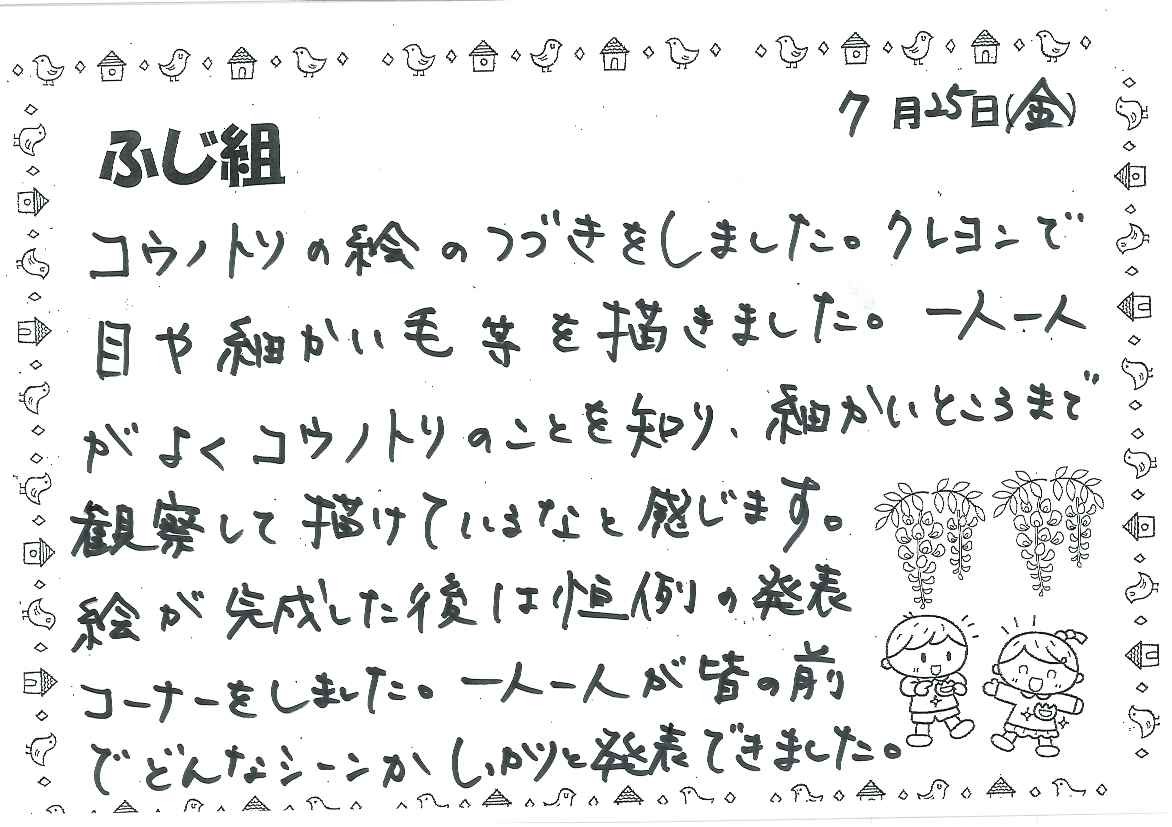 7月25日(金)
ふじ組
コウノトリの絵のつづきをしました。クレヨンで
目や細かい毛等を描きました。一人一人
がよくコウノトリのことを知り、細かいところまで
観察して描けているなと感じます。
絵が完成した後は恒例の発表
コーナーをしました。一人一人が皆の前
でどんなシーンかしっかりと発表できました。